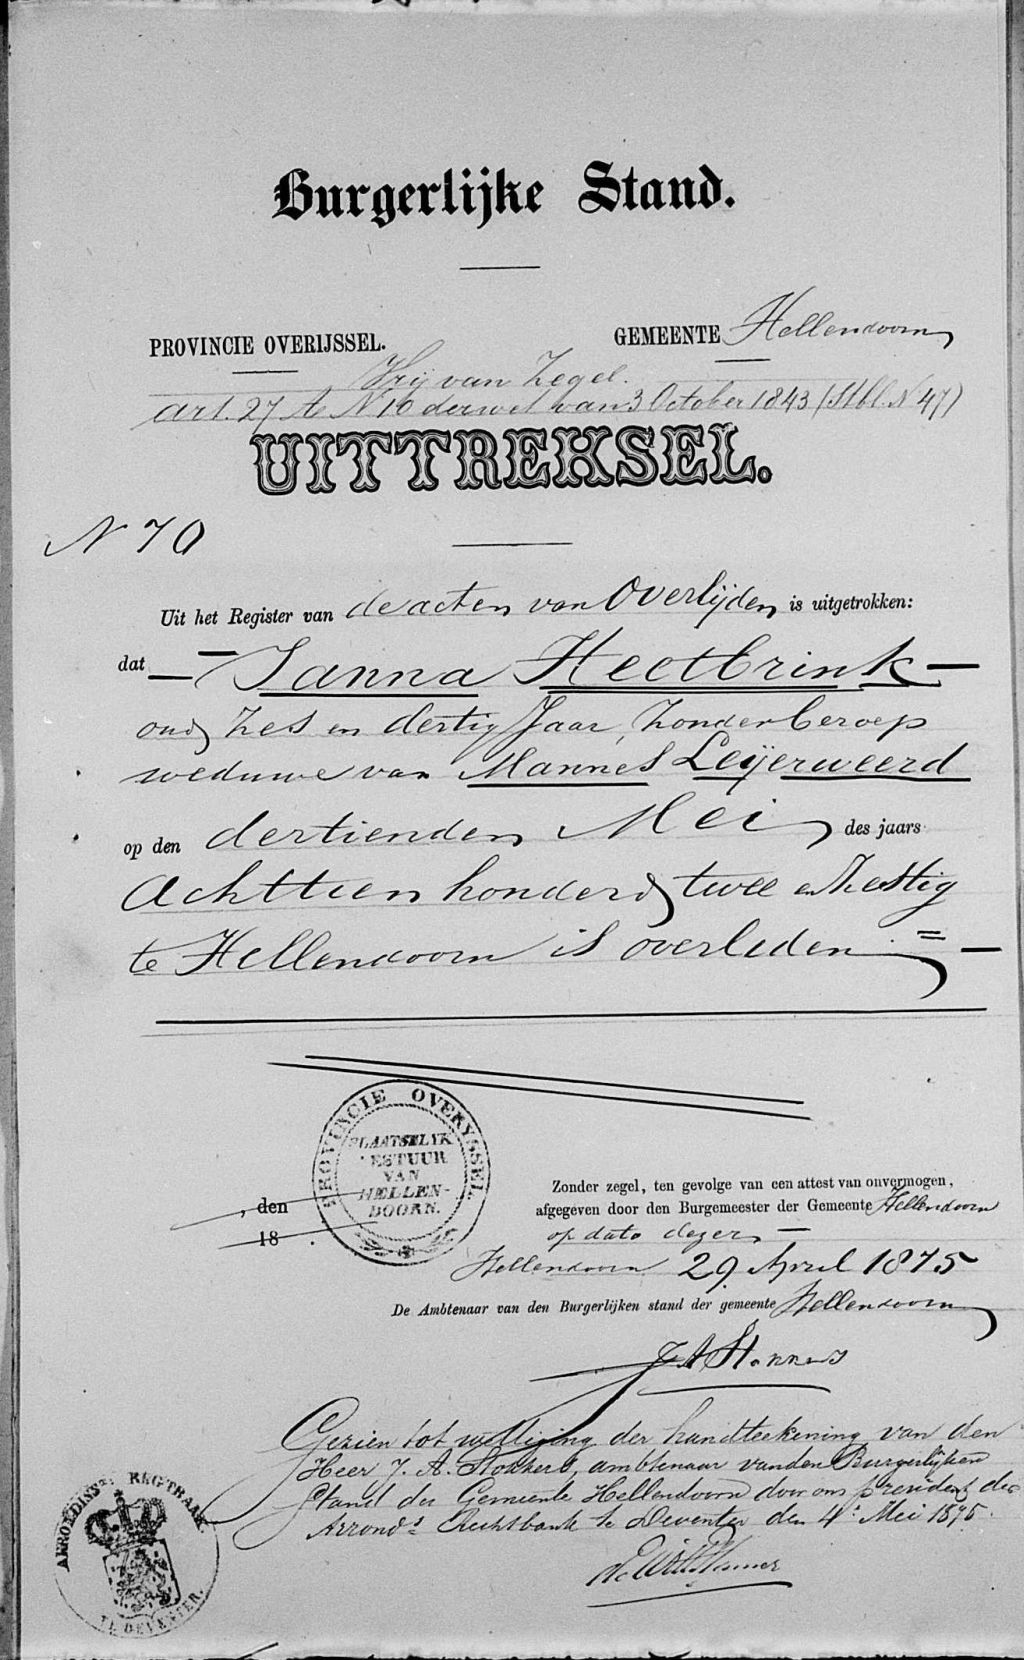 Burgerlijke Stand.
PROVINCIE OVERIJSSEL. GEMEENTE Hellendoorn
Vrij van Zegel.
art. 27 le N 10 der wet van 3 October 1843 (Stbl. N 47)
UITTREKSEL.
N 70
Uit het Register van de acten van Overlijden is uitgetrokken:
dat Janna Heetbrink
oud zes en dertig Jaar, zonder beroep
weduwe van Mannes Leijerweerd
op den dertienden Mei des jaars
Achttien honderd twee en zestig
te Hellendoorn is overleden
PROVINCIE OVERYSSEL
PLAATSELYK
BESTUUR
VAN
HELLEN-
DOORN.
, den
18 .
Zonder zegel, ten gevolge van een attest van onvermogen,
afgegeven door den Burgemeester der Gemeente Hellendoorn
op dato dezer
Hellendoorn 29 April 1875
De Ambtenaar van den Burgerlijken stand der gemeente Hellendoorn
J A Stokkers
Gezien tot wettiging der handteekening van den
Heer J. A. Stokkers, ambtenaar van den Burgerlijken
Stand der Gemeente Hellendoorn door ons president der
Arronds Rechtbank te Deventer den 4 Mei 1875.
ARRONDISST REGTBANK
TE DEVENTER.